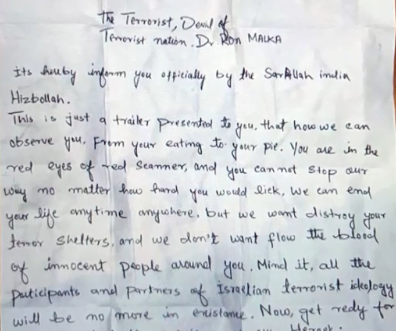 The Terrorist, Devil of
Terrorist nation. Dr. Ron MALKA
Its hereby inform you officially by the SarAllah india
Hizbollah.
This is just a trailer presented to you, that how we can
observe you, from your eating to your pie. You are in the
red eyes of red scanner, and you can not stop our
way no matter how hard you would lick, we can end
your life anytime anywhere, but we want distroy your
terror shelters, and we don't want flow the blood
of innocent people around you. Mind it, all the
participants and partners of Israelian terrorist ideology
will be no more in existance. Now, get redy for